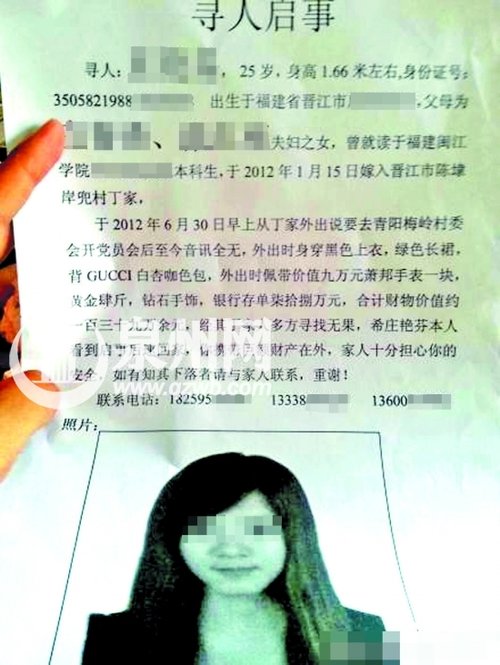 寻人启事
寻人: ，25岁，身高1.66米左右,身份证号:
3505821988 出生于福建省晋江市 ,父母为
、 夫妇之女，曾就读于福建闽江
学院 本科生，于2012年1月15日嫁入晋江市陈埭
岸兜村丁家，
于2012年6月30日早上从丁家外出说要去青阳梅岭村委
会开党员会后至今音讯全无，外出时身穿黑色上衣，绿色长裙，
背GUCCI白杏咖色包，外出时佩带价值九万元萧邦手表一块，
黄金肆斤，钻石手饰，银行存单柒拾捌万元，合计财物价值约
一百三十九万余元， 多方寻找无果，希庄艳芬本人
看到启事 财产在外，家人十分担心你的
安全，如有知其下落者请与家人联系，重谢！
联系电话：182595 13338 13600
照片：
泉州网
www.qzwb.com